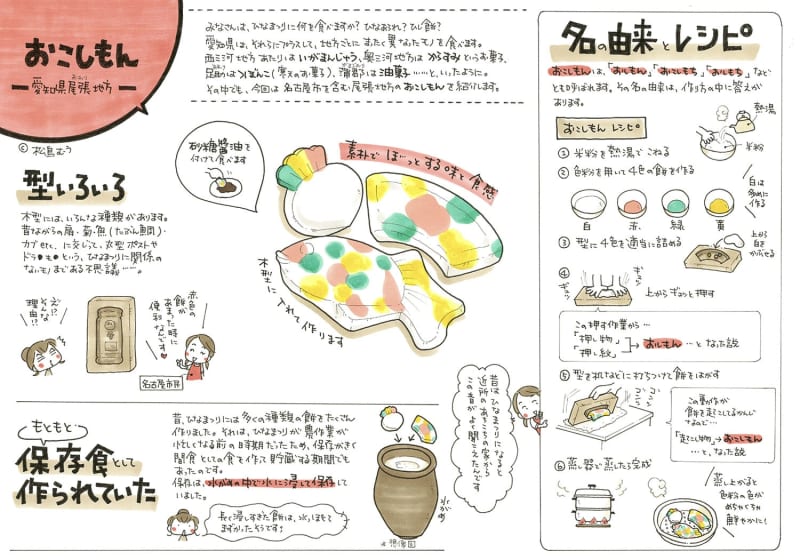 おこしもん
愛知県尾張地方
おわり
© 松鳥むう
みなさんは、ひなまつりに何を食べますか？ひなあられ？ひし餅？
愛知県は、それらにプラスして、地方ごとに まったく異なったモノを食べます。
西三河地方あたりは いがまんじゅう、奥三河地方は からすみ というお菓子、
がまごおり
蒲郡は 油菓子……と、いったように。
その中でも、今回は 名古屋市を含む尾張地方の おこしもんを紹介します。
型いろいろ
木型には、いろんな種類があります。
昔ながらの扇・菊・魚(たぶん鯛)・
カブなどに交じって、丸型ポストや
ドラ●も●という、ひなまつりに関係の
ないモノまである不思議……。
え!?
そんな
理由!?
赤色の
餅が
あまった時に
便利なんです
名古屋市民
砂糖醤油を
付けて食べます
素朴で ぼ〜っとする味と食感
木型に
入れて作ります
もともと
保存食として
作られていた
昔、ひなまつりには多くの種類の餅をたくさん
作りました。それは、ひなまつりが農作業が
忙しくなる前の時期だったため、保存がきく
間食としての食を作って貯蔵する期間でも
あったのです。
保存は、水がめの中で水に浸して保存して
いました。
長く浸しすぎた餅は、水っぽくて
まずかったそうです。
水がめ
想像図
昔はひなまつりになると
近所のあちこちの家から
この音がよく聞こえたんです
名の由来とレシピ
おこしもんは、「おしもん」「おこしもち」「おしもち」など
とも呼ばれます。その名の由来は、作り方の中に答えが
あります。
おこしもん レシピ
熱湯
米粉
① 米粉を熱湯でこねる
② 色粉を用いて4色の餅を作る
白 赤 緑 黄
白は
多めに
作る
③ 型に4色を適当に詰める
上から
白を
かぶせる
④
ギュッ
ギュッ
上からギュッと押す
この押す作業から…
「押し物」
「押し紋」
→ おしもん …となった説
⑤ 型を机などに打ちつけて餅をはがす
コンッ
コンッ
この動作が
餅を起こしてるかんじ
なので…
「起こし物」→おこしもん
…と、なった説
⑥ 蒸し器で蒸したら完成
蒸し上がると
色粉の色が
めちゃくちゃ
鮮やかに！